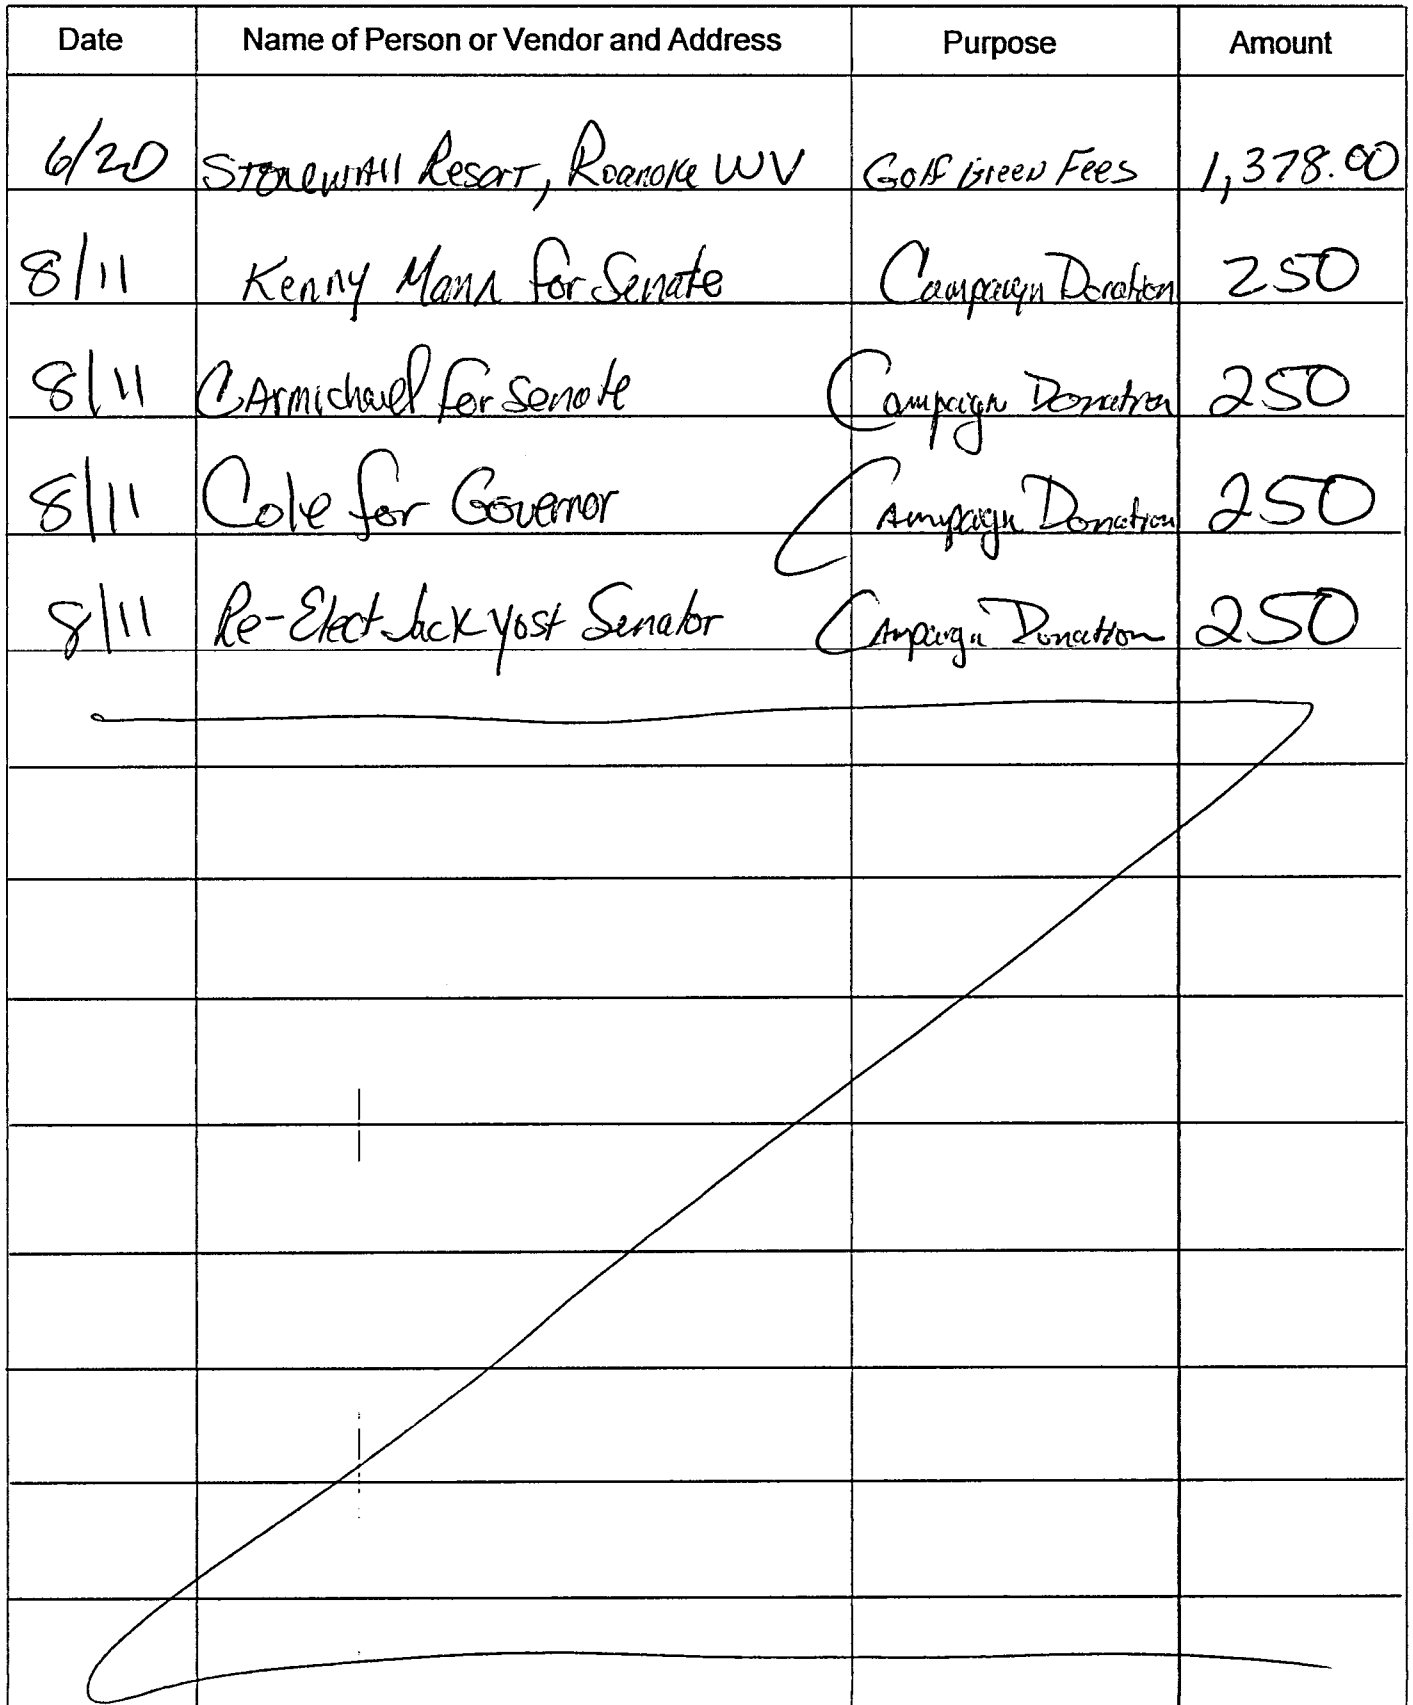 Date Name of Person or Vendor and Address Purpose Amount
6/20 Stonewall Resort, Roanoke WV Golf Green Fees 1,378.00
8/11 Kenny Mann for Senate Campaign Donation 250
8/11 Carmichael for Senate Campaign Donation 250
8/11 Cole for Governor Campaign Donation 250
8/11 Re-Elect Jack Yost Senator Campaign Donation 250